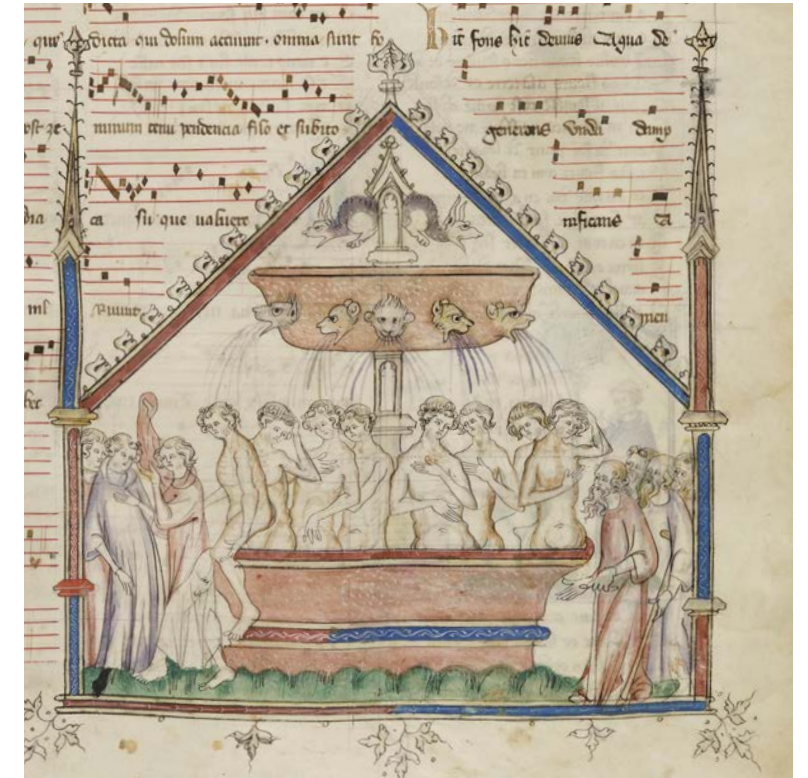 que dicta qui dolum acciunt. omnia sunt fo
Hic fons hic deuius Aqua de
ost ze
minium tenui pendencia filo et subito
generans unda damp
dia
ca su que ualuere
nificans
Ruunt
men